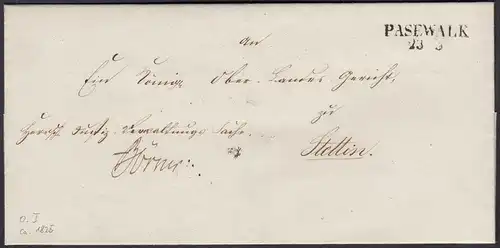 PASEWALK
23 3
An
Ein Königl. Ober-Landes-Gericht.
zu
Herrsch. Justiz-Verwaltungs Sache.
Stettin.
ca. 1826